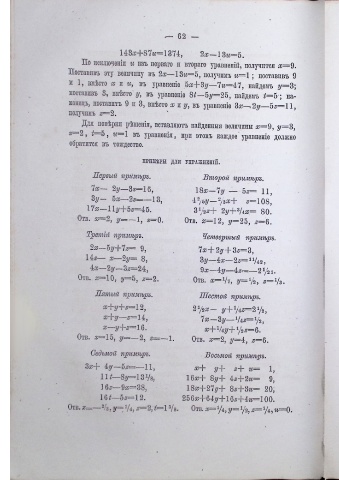 — 62 —
143x+87u=1374, 2x—13u=5.
По исключеніи u изъ перваго и втораго уравненій, получится x=9.
Поставивъ эту величину въ 2x—13u=5, получимъ u=1; поставивъ 9
и 1, вмѣсто x и u, въ уравненіи 5x+3y—7u=47, найдемъ y=3;
поставивъ 3, вмѣсто y, въ уравненіи 8t—5y=25, найдемъ t=5; на-
конецъ, поставивъ 9 и 3, вмѣсто x и y, въ уравненіе 3x—2y—5z=11,
получимъ z=2.
Для повѣрки рѣшенія, вставляютъ найденныя величины x=9, y=3,
z=2, t=5, u=1 въ уравненія, при этомъ каждое уравненіе должно
обратиться въ тождество.
ПРИМѢРЫ ДЛЯ УПРАЖНЕНІЙ.
Первый примѣръ.
7x— 2y—3z=16,
3y— 5x—2z=—13,
17x—11y+5z=45.
Отв. x=2, y=—1, z=0.
Второй примѣръ.
18x—7y — 5z= 11,
Отв. x=12, y=25, z=6.
Третій примѣръ.
2x—5y+7z= 9,
14z— x—2y= 8,
4x—2y—3z=24,
Отв. x=10, y=5, z=2.
Четвертый примѣръ.
7x+2y+3z=3,
Пятый примѣръ.
x+y+z=12,
x+y—z=14,
x—y+z=16.
Отв. x=15, y=—2, z=—1.
Шестой примѣръ.
Отв. x=2, y=4, z=6.
Седьмой примѣръ.
3x+ 4y—5z=—11,
16z—9x=38,
16t—5z=12.
Восьмой примѣръ.
x+ y+ z+ u= 1,
16x+ 8y+ 4z+2u= 9,
18x+27y+ 9z+3u= 20,
256x+64y+16z+4u=100.